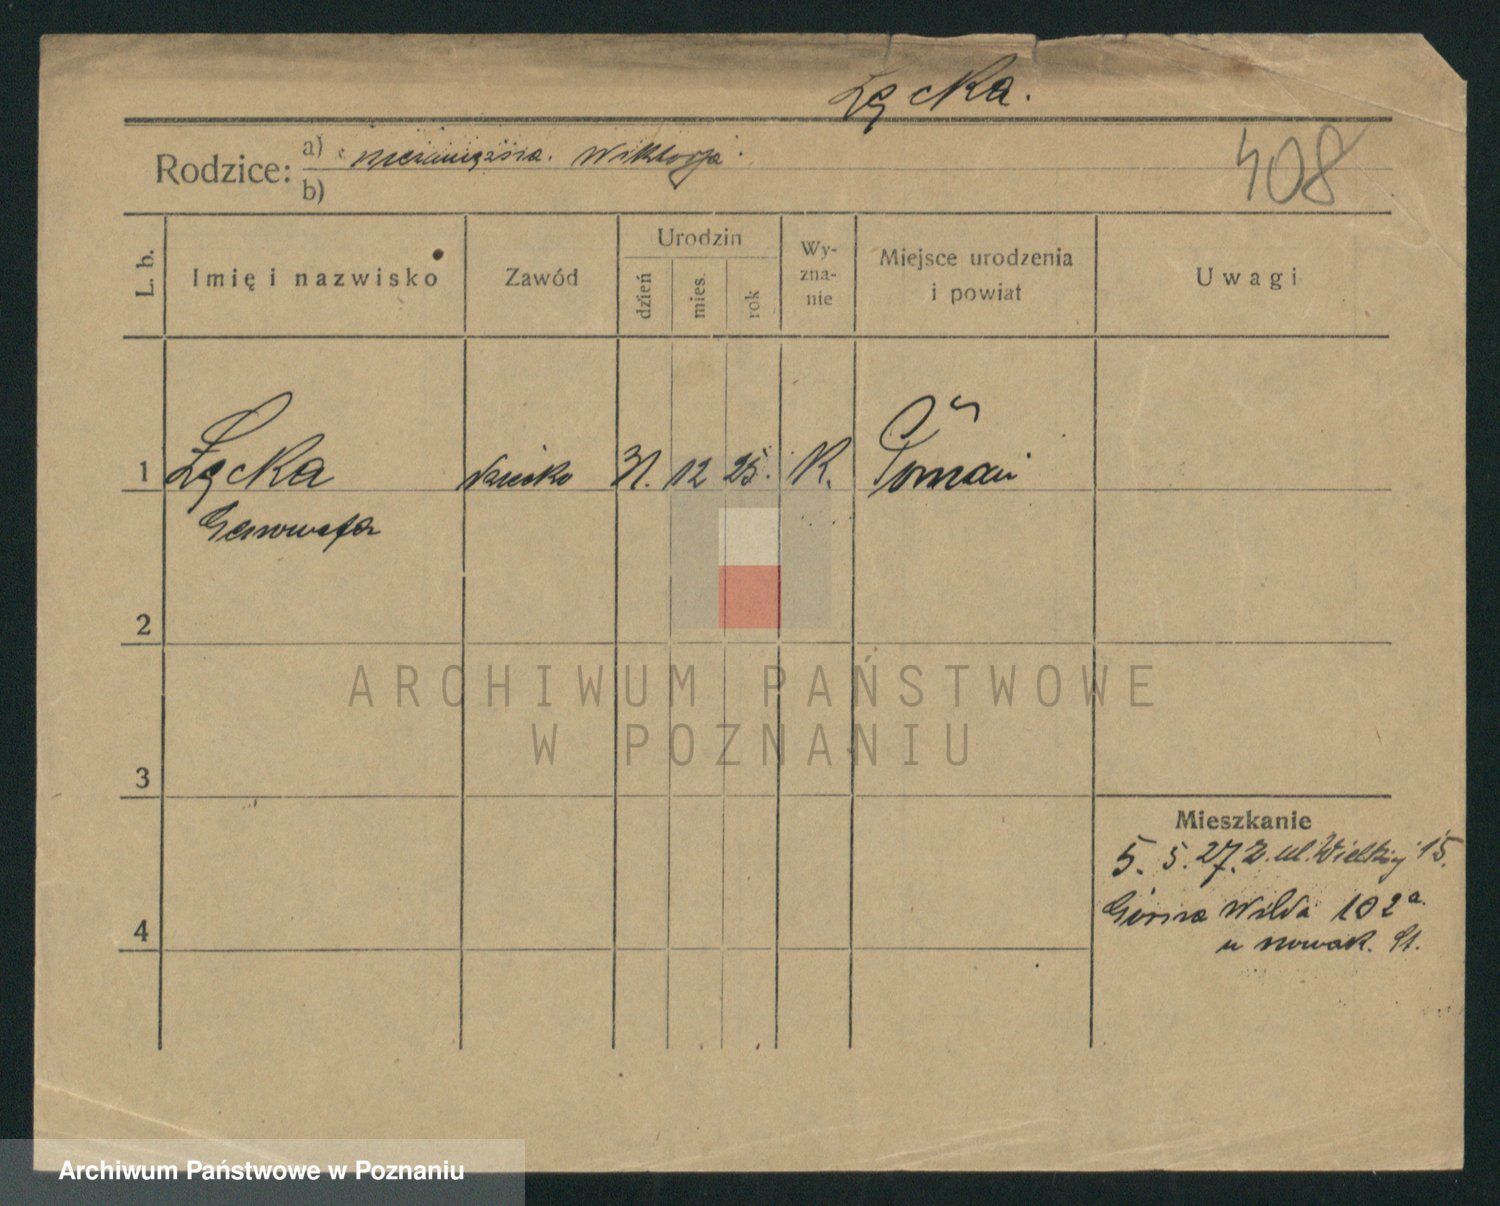 Łącka.
Rodzice:
a) niezamężna. Wiktorja.
b)
408
L. b.
Imię i nazwisko
Zawód
Urodzin
dzień
mies.
rok
Wy-
zna-
nie
Miejsce urodzenia
i powiat
Uwagi
1 Łącka 31. 12 25. K. Poznań
Genowefa
2
3
4
Mieszkanie
5. 5. 27. z. ul. Wielkiej 15.
Górna Wilda 102a.
u Nowak. St.
ARCHIWUM PAŃSTWOWE
W POZNANIU
Archiwum Państwowe w Poznaniu